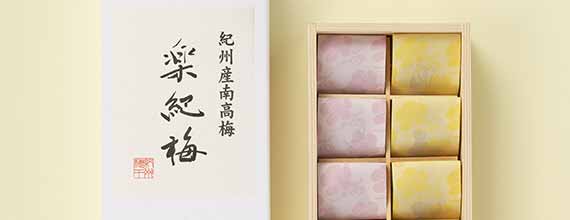 紀州産南高梅
楽紀梅